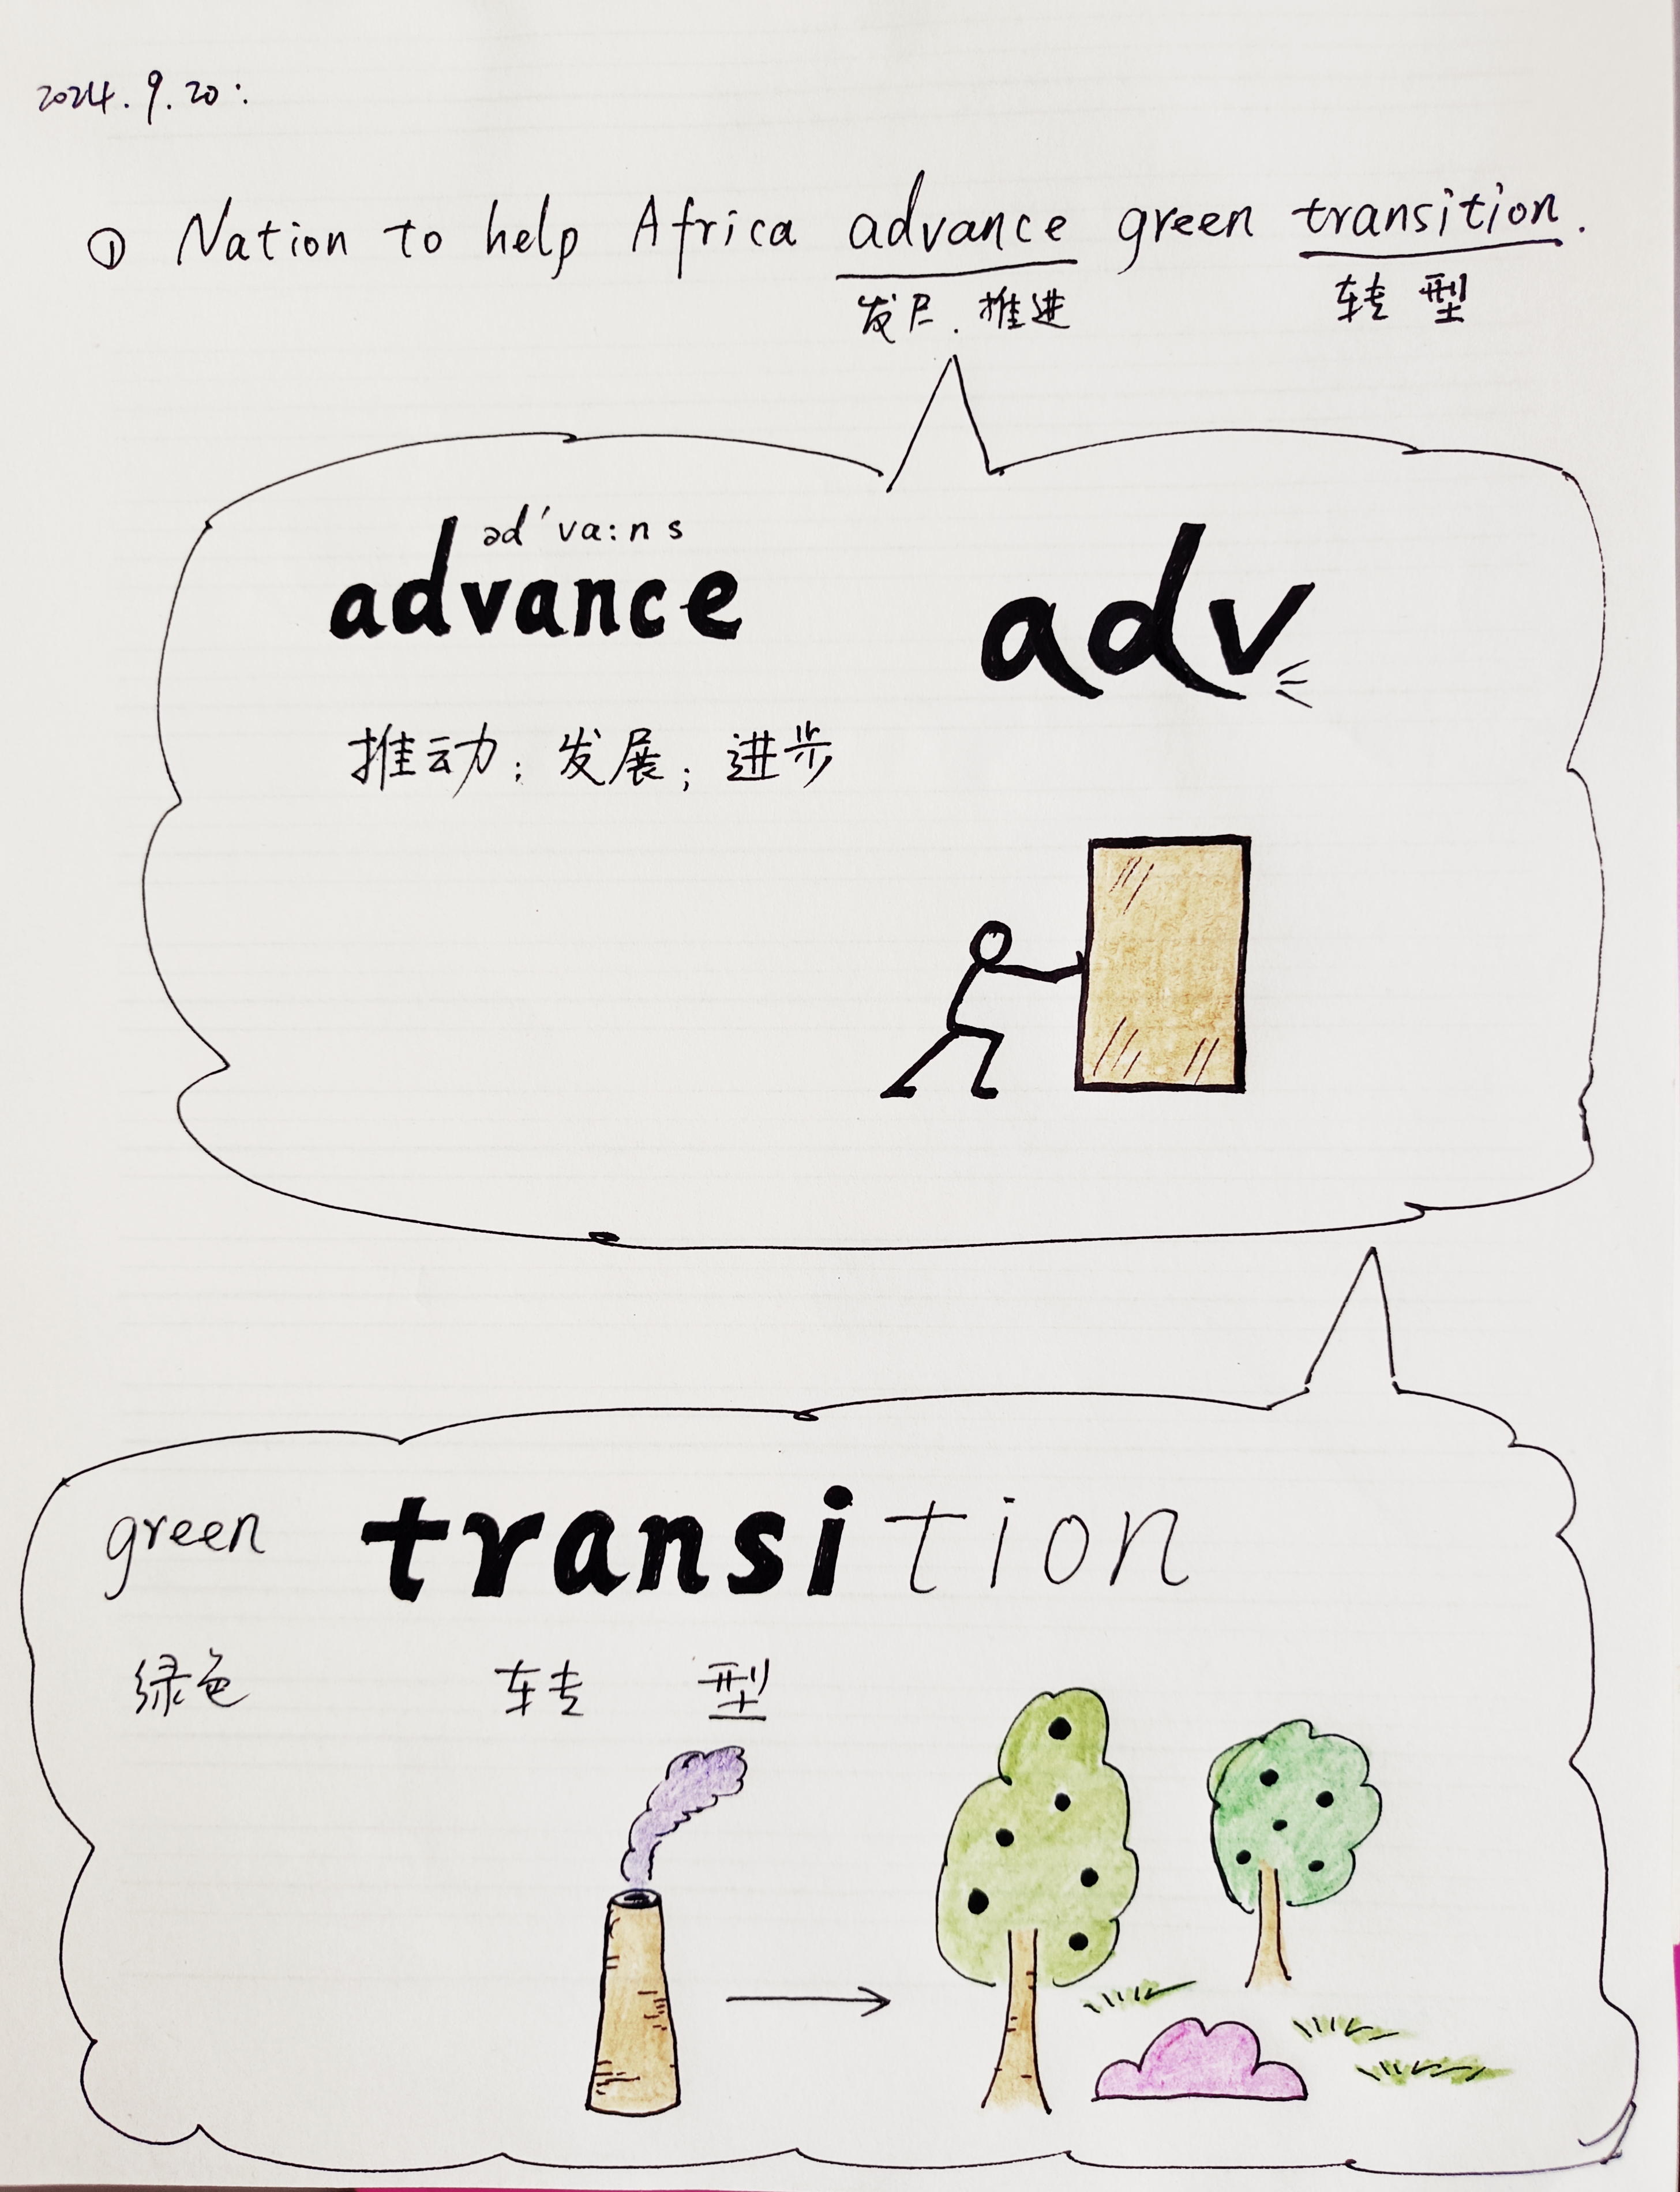 2024.9.20:
① Nation to help Africa advance green transition.
发尸.推进 转型
əd'vɑ:ns
advance adv
推动;发展;进步
green transition
绿色 转型